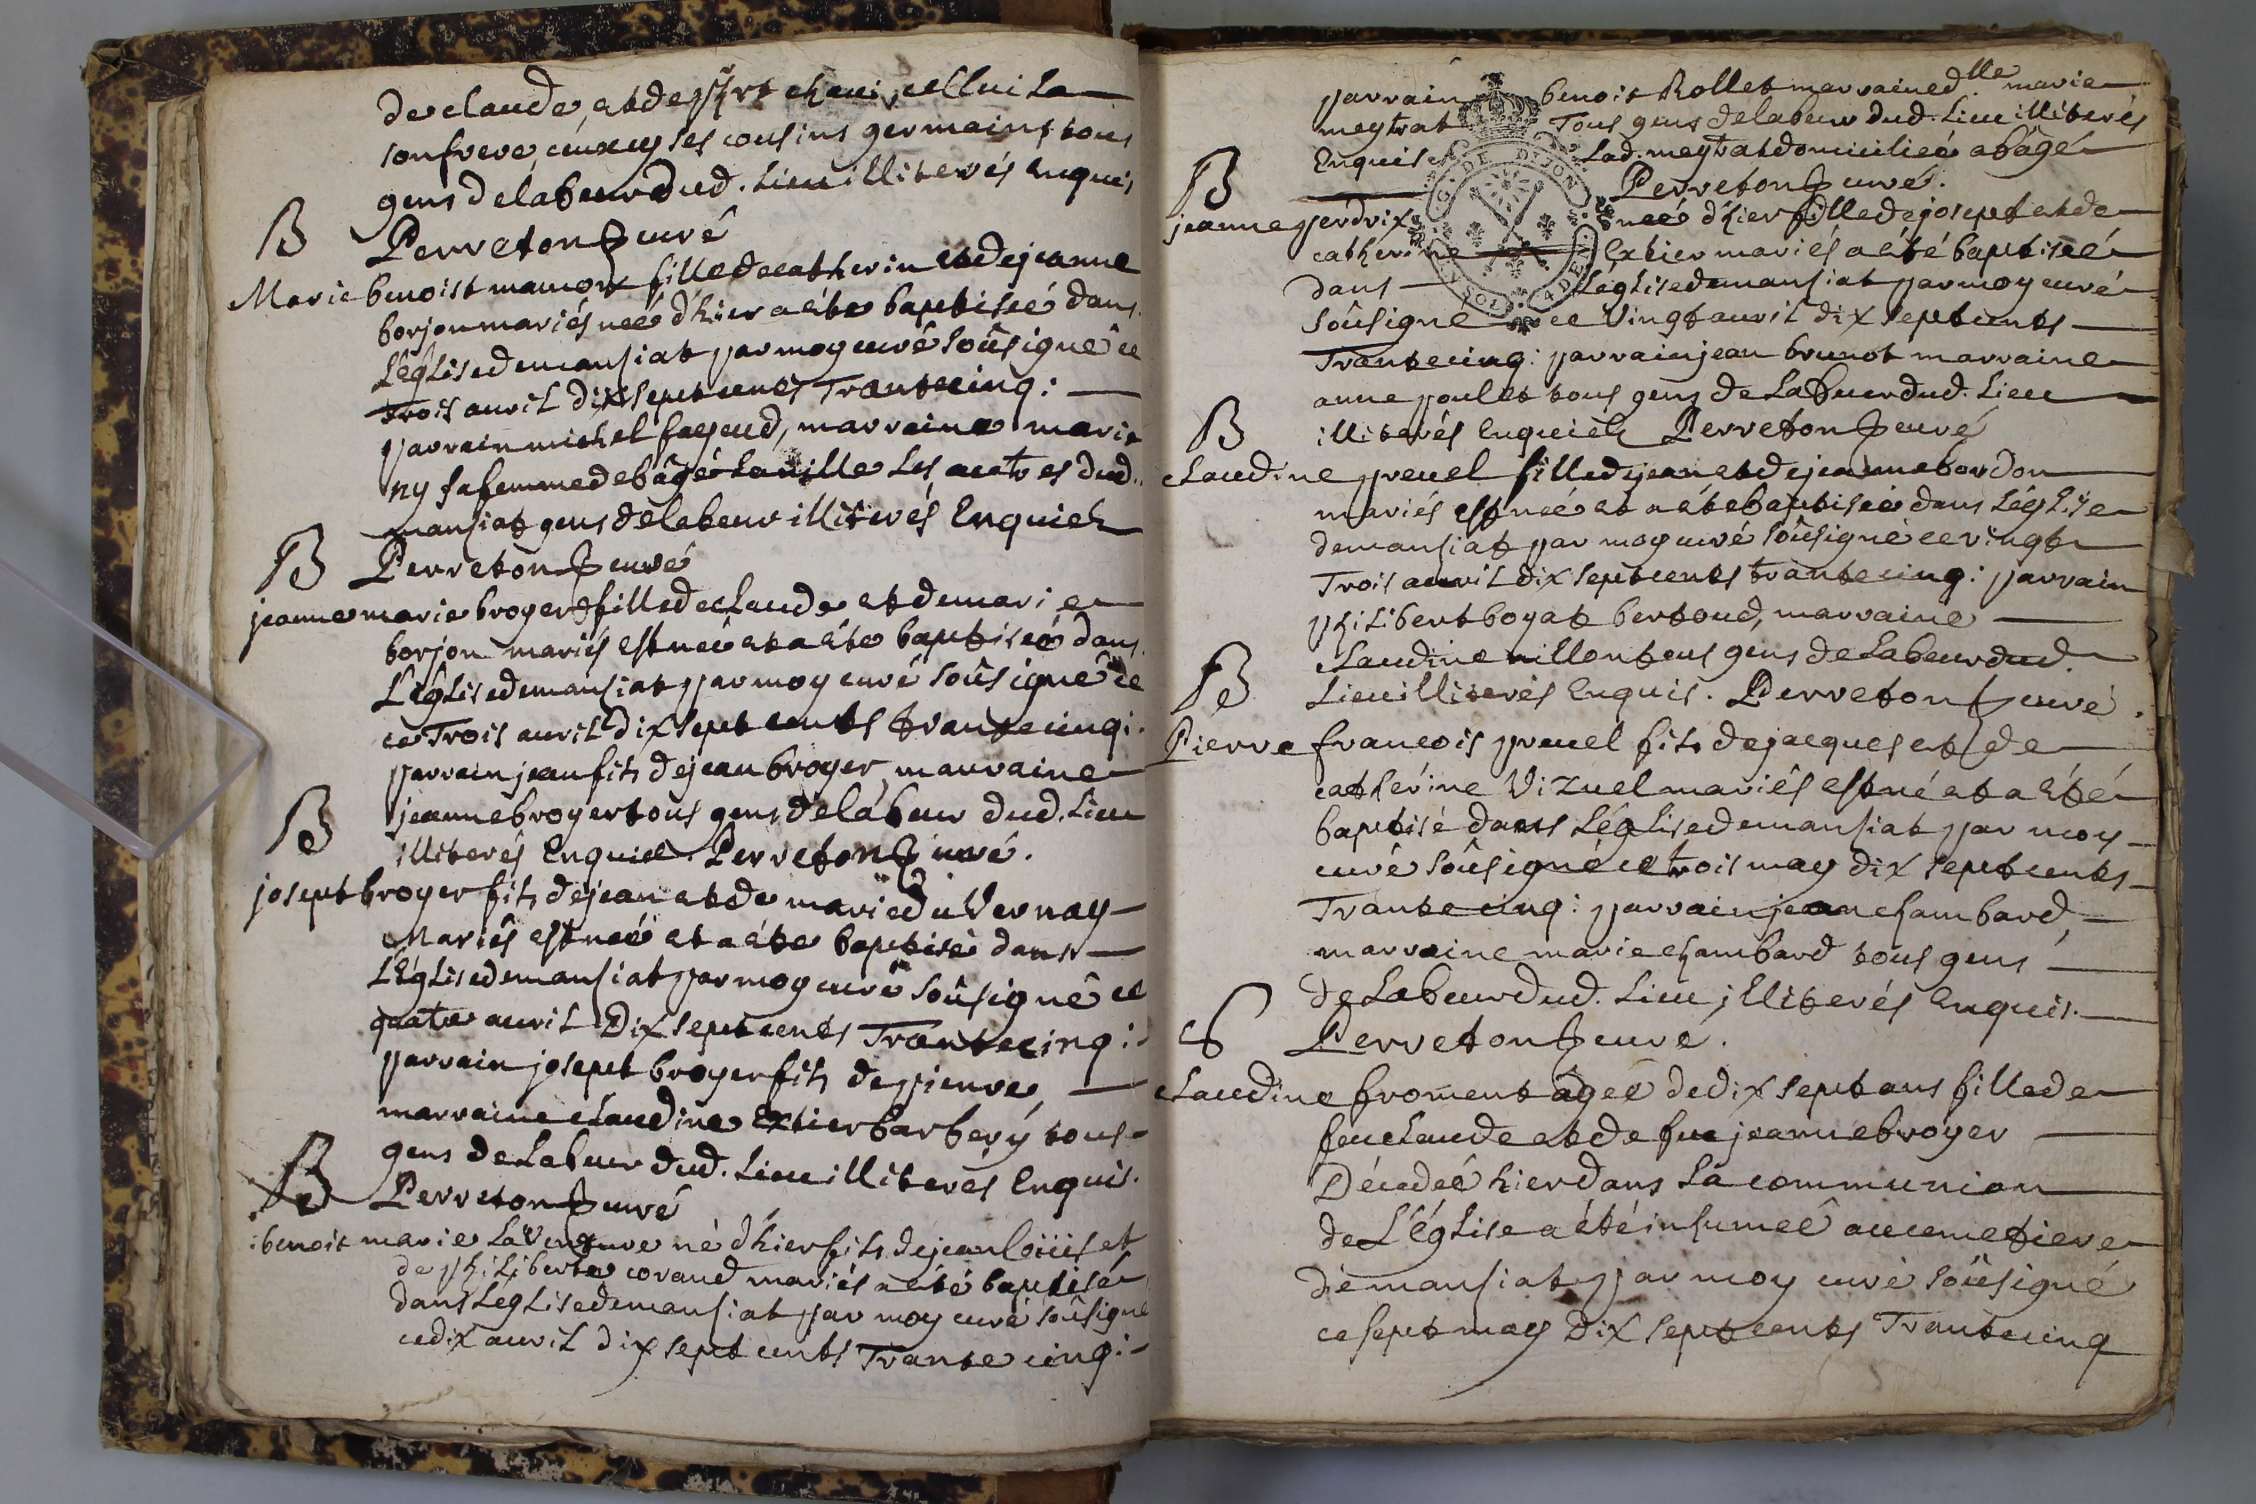 de claude, et de chevi, celluila
son frere, ceuxcy ses cousins germains tous
gens de labeur dud. Lieu illiterés Enquis
B Perreton curé
Marie benoist mamoux fille de catherin et de jeanne
borjon mariés née d'hier a éte baptisée dans
L'église de mansiat par moy curé soûsigné ce
trois avril dix sept cents Trante cinq:
parrain michel fayeud, marraine marie
ny sa femme de bâgé la ville Les autres dud.
mansiat gens de labeur illiterés Enquieh
B Perreton curé
jeanne marie broyer fille de claude et de marie
borjon mariés est née et a éte baptisée dans
L'église de mansiat par moy curé soûsigné ce
ce Trois avril dix sept cents trante cinq:
parrain jean fils de jean broyer, marraine
jeanne broyer tous gens de labeur dud. Lieu
B illiterés Enquieh Perreton curé.
josept broyer fils de jean et de marie du Vernay
Mariés est neé et a éte baptisé dans
L'église de mansiat par moy curé soûsigné ce
quatre avril Dix sept cents Trante cinq:
parrain josept broyer fils de pierre,
marraine claudine Extier barbery tous
gens de Labeur dud. Lieu illiterés Enquis.
B Perreton curé
benoit marie Lavergure né d'hier fils de jean loüis et
de philiberte coraud mariés a été baptisé
dans L'église de mansiat par moy curé soûsigné
ce dix avril dix sept cents Trante cinq:
parrain benoit Rollet marraine d.lle marie
meytrat Tous gens de labeur dud. Lieu illiterés
Enquis Lad. meytrat domiciliée a bâgé
B Perreton curé.
G. DE DIJON
SOLS 4 DEN.
jeanne perdrix neé d'hier fille de josept et de
catherine Extier mariés a été baptiseé
dans L'église de mansiat par moy curé
soûsigné ce Vingt avril dix sept cents
Trante cinq: parrain jean brunot marraine
anne poulet tous gens de Labeur dud. Lieu
B illiterés Enquieh Perreton curé
claudine preuel fille de jean et de jeanne bordon
mariés est neé et a été baptiseé dans L'église
de mansiat par moy curé soûsigné ce vingt
Trois avril dix sept cents trante cinq: parrain
philibert boyat bertoud, marraine
claudine villon tous gens de Labeur dud.
B Lieu illiterés Enquis. Perreton curé.
Pierre francois preuel fils de jacques et de
catherine Vizuel mariés est né et a été
baptisé dans L'église de mansiat par moy
curé soûsigné ce trois may dix sept cents
Trante cinq: parrain jean chambard,
marraine marie chambard tous gens
de Labeur dud. Lieu jlliterés Enquis.
S Perreton curé.
claudine froment âgeé de dix sept ans fille de
feu claude et de fue jeanne broyer
Décedeé hier dans La communion
de L'église a été inhumeé au cemetiere
de mansiat par moy curé soûsigné
ce sept may Dix sept cents Trante cinq